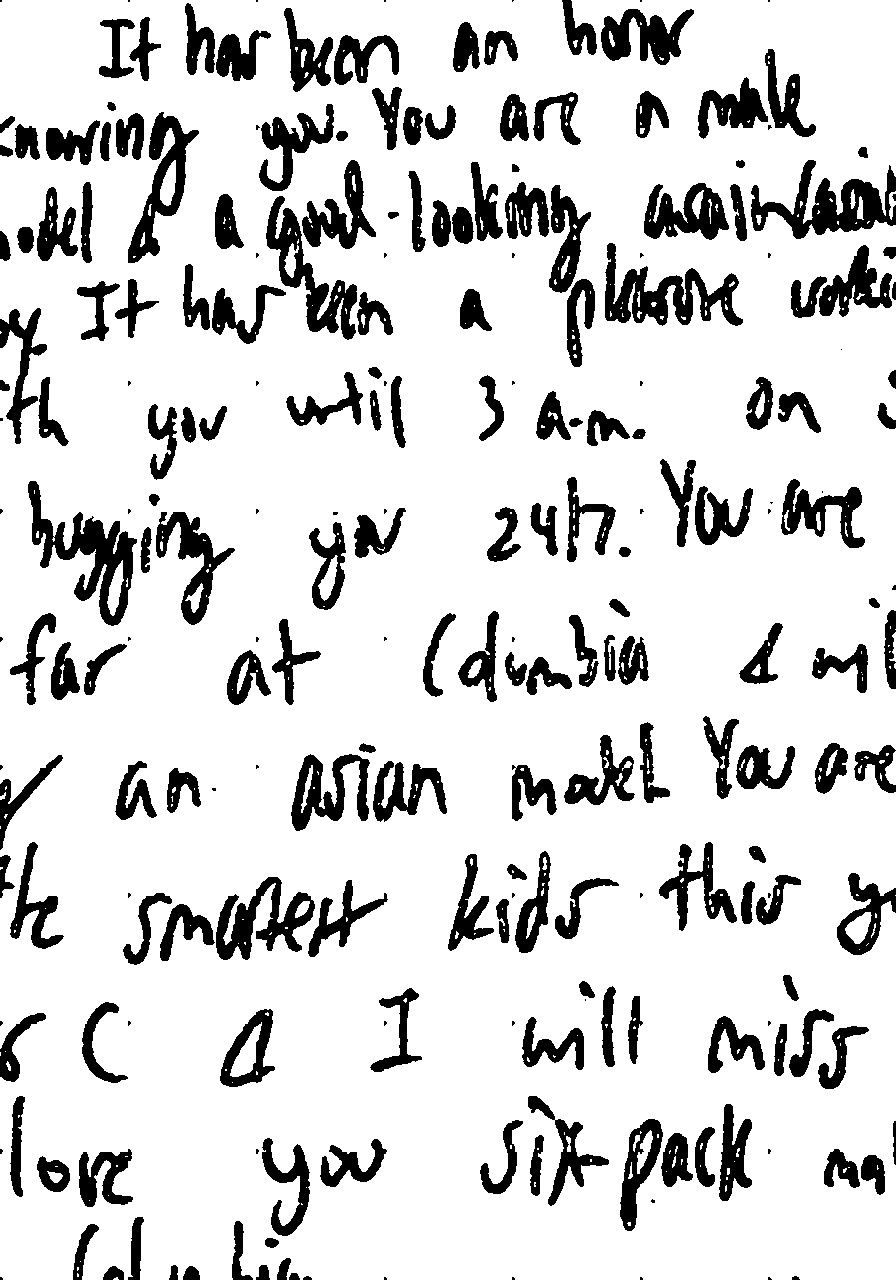 It has been an honor
knowing you. You are a male
model & a good-looking
It has been a pleasure
you until 3 a.m. on
hugging you 24/7. You are
far at Columbia &
an asian model You are
the smartest kids this
C & I will miss
love you six-pack
Columbia